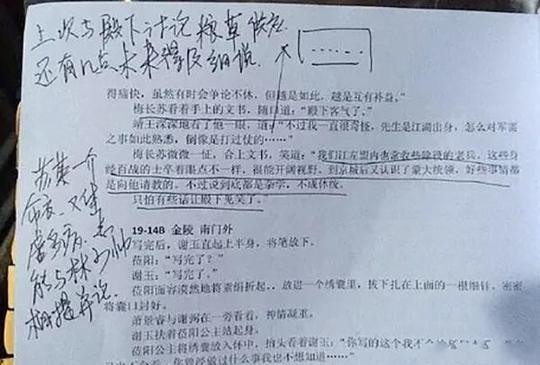 上次与殿下讨论粮草供应
还有几点未来得及细说
......
得痛快，虽然有时会争论不休，但越是如此，越是互有补益。”
梅长苏看着手上的文书，随口道：“殿下客气了。”
靖王深深地看了他一眼，道：“不过我一直很奇怪，先生是江湖出身，怎么对军需
之事如此熟悉，倒像是打过仗的……”
梅长苏微微一怔，合上文书，笑道：“我们江左盟内也常收些除役的老兵，这些身
经百战的士卒着眼点不一样，很能开阔视野。到京城后又认识了蒙大统领，好些事情都
是向他请教的。不过说到底都是杂学，不成体统。
只怕有些话让殿下见笑了。”
苏某一介
布衣，又体
弱多病，
能与林
相提并论。
19-14B 金陵 南门外
写完后，谢玉直起上半身，将笔放下。
莅阳：“写完了？”
谢玉：“写完了。”
莅阳面容漠然地将素绢折起，放进一个绣囊里，拔下扎在上面的一根细针，密密
将囊口封好。
萧景睿与谢弼在一旁看着，神情凝重。
谢玉扶着莅阳公主站起身。
莅阳公主将绣囊放入怀中，抬头看着谢玉：“你写的这个我不会
做过什么事我也不想知道……”